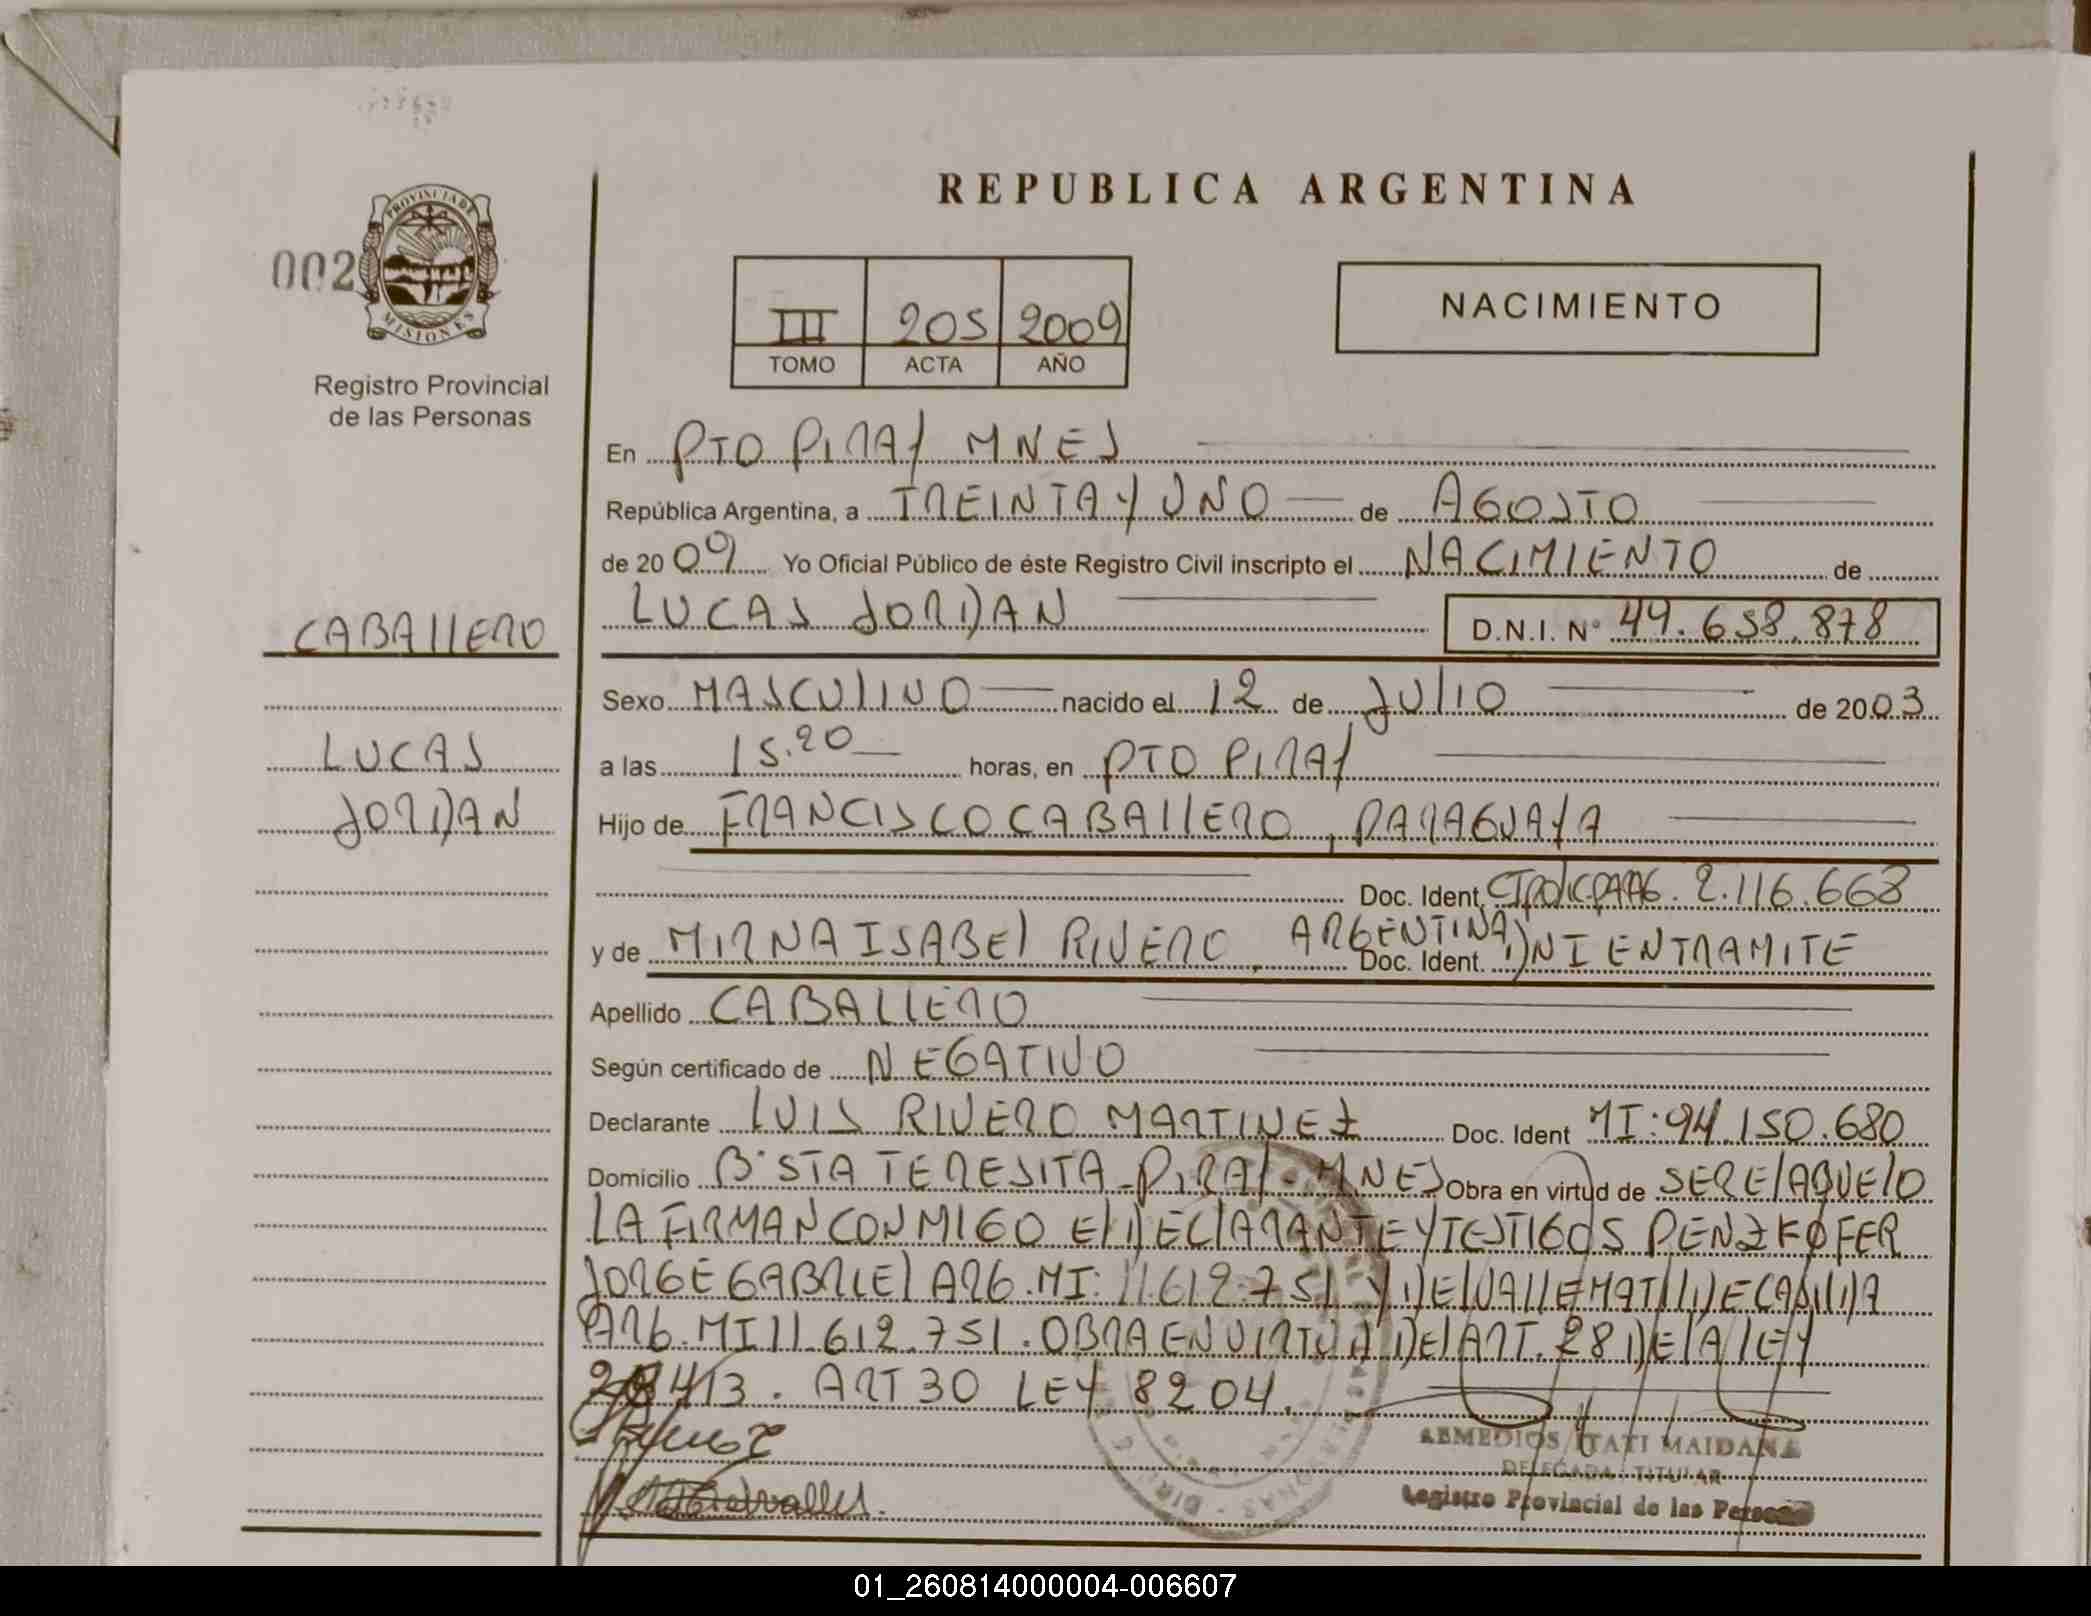 REPUBLICA ARGENTINA
PROVINCIA DE
MISIONES
002
Registro Provincial
de las Personas
NACIMIENTO
III 205 2009
TOMO ACTA AÑO
En PTO PIRAY MNES
República Argentina, a TREINTA Y UNO de AGOSTO
de 2009 Yo Oficial Público de éste Registro Civil inscripto el NACIMIENTO de
LUCAS JORDAN D.N.I. N° 49.658.878
CABALLERO
LUCAS
JORDAN
Sexo MASCULINO nacido el 12 de JULIO de 2003
a las 15.20 horas, en PTO PIRAY
Hijo de FRANCISCO CABALLERO, PARAGUAYA
Doc. Ident. 2.116.668
y de MIRNA ISABEL RIVERO, ARGENTINA, Doc. Ident. DNI EN TRAMITE
Apellido CABALLERO
Según certificado de NEGATIVO
Declarante LUIS RIVERO MARTINEZ Doc. Ident MI: 94.150.680
Domicilio B° STA TERESITA - PIRAY - MNES Obra en virtud de SER EL ABUELO
LA FIRMAN CONMIGO EL DECLARANTE Y TESTIGOS PENZKOFER
JORGE GABRIEL ARG. MI: 11.612.751 Y DEL VALLE MATILDE
ARG. MI 11.612.751. OBRA EN VIRTUD DEL ART. 28 DE LA LEY
413. ART 30 LEY 8204.
REMEDIOS ITATI MAIDANA
DELEGADA TITULAR
Registro Provincial de las Personas
01_260814000004-006607